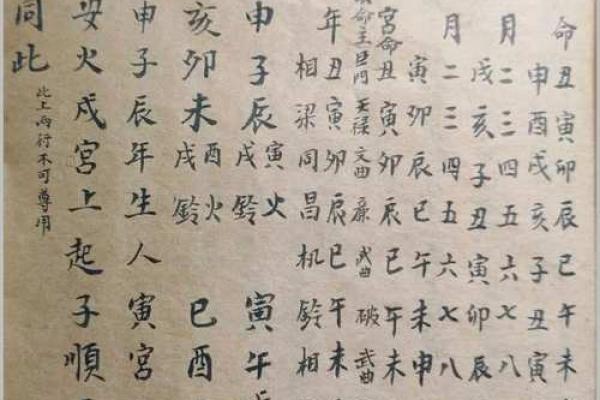 命丑寅卯辰巳午未
申酉戌亥子丑寅
月二三四五六七八
戌亥子丑寅卯辰
月二三四五六七八
寅卯辰巳午未申
宮命丑寅卯辰巳午未
命主巨門天祿文曲廉武曲破武曲
年丑寅卯辰巳午未
相梁同昌机鈴相
申子辰寅火戌鈴寅午
亥卯未酉火戌鈴巳酉
申子辰年生人寅宮
安火戌宮上起子順
同此
此上兩行不可尊用